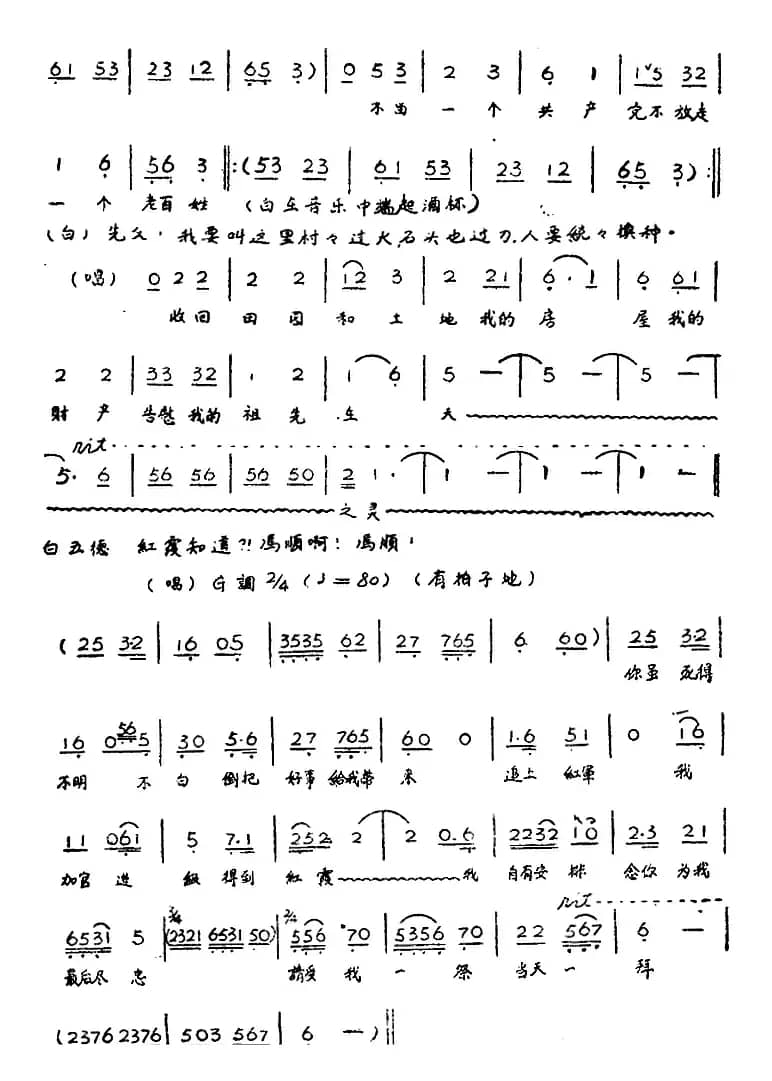 61 53 | 23 12 | 65 3 ) | 0 53 | 2 3 | 6 1 | 1ˇ5 32 |
不留 一 个 共 产 党不 放走
1 6 | 56 3 ‖: ( 53 23 | 61 53 | 23 12 | 65 3 ) :‖
一 个 老百 姓 (白在音乐中端起酒杯)
(白) 先父,我要叫这里村々过火,石头也过刀,人要統々换种。
(唱) 0 22 | 2 2 | 12 3 | 2 21 | 6· 1 | 6 61 |
收回 田 园 和 土 地 我的 房 屋 我的
2 2 | 33 32 | 1 2 | 1 6 | 5 — | 5 — | 5 — |
财 产 告慰 我的 祖 先 在 天
rit
5· 6 | 56 56 | 56 50 | 2 1· | 1 — | 1 — | 1 — ‖
之 灵
白五德 紅霞知道?!馮順啊!馮順!
(唱) G調 2/4 (♩=80) (有拍子地)
( 25 3·2 | 16 05 | 3535 62 | 27 765 | 6 60 ) | 25 3·2 |
你虽 死得
16 0 56 5 | 30 5·6 | 27 765 | 60 0 | 1·6 51 | 0 16 |
不明 不 白 倒把 好事 给我带 来 追上 紅軍 我
11 061 | 5 7·1 | 252 2 | 2 0·6 | 2232 10 | 2·3 21 |
加官 进 級 得到 紅霞 我 自有安 排 念你 为我
rit
6531 5 | 3/4 (2321 6531 50) | 2/4 556 70 | 5356 70 | 22 567 | 6 — |
最后尽 忠 請受 我 一 祭 当天 一 拜
(2376 2376 | 503 567 | 6 — ) ‖